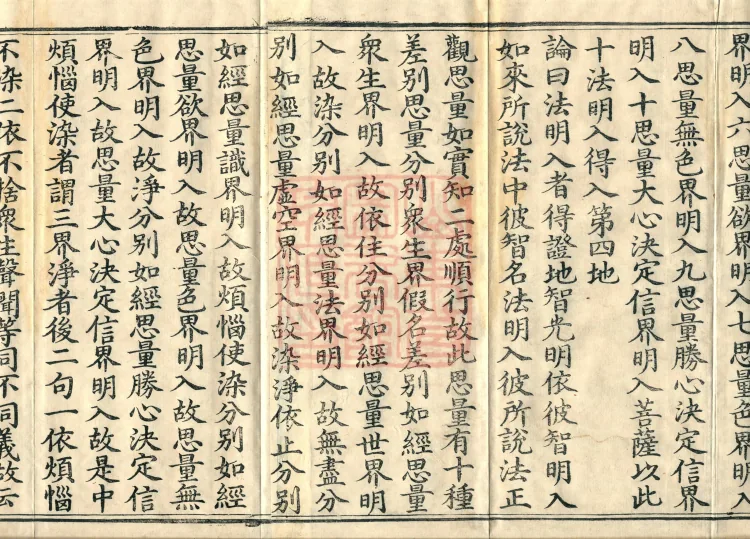 界明入六思量欲界明入七思量色界明入
八思量無色界明入九思量勝心決定信界
明入十思量大心決定信界明入菩薩以此
十法明入得入第四地
論曰法明入者得證地智光明依彼智明入
如來所說法中彼智名法明入彼所說法正
觀思量如實知二處順行故此思量有十種
差別思量分別衆生界假名差別如經思量
衆生界明入故依住分別如經思量世界明
入故染分別如經思量法界明入故無盡分
別如經思量虛空界明入故染淨依止分別
如經思量識界明入故煩惱使染分別如經
思量欲界明入故思量色界明入故思量無
色界明入故淨分別如經思量勝心決定信
界明入故思量大心決定信界明入故是中
煩惱使染者謂三界淨者後二句一依煩惱
不染二依不捨衆生聲聞等同不同義故云